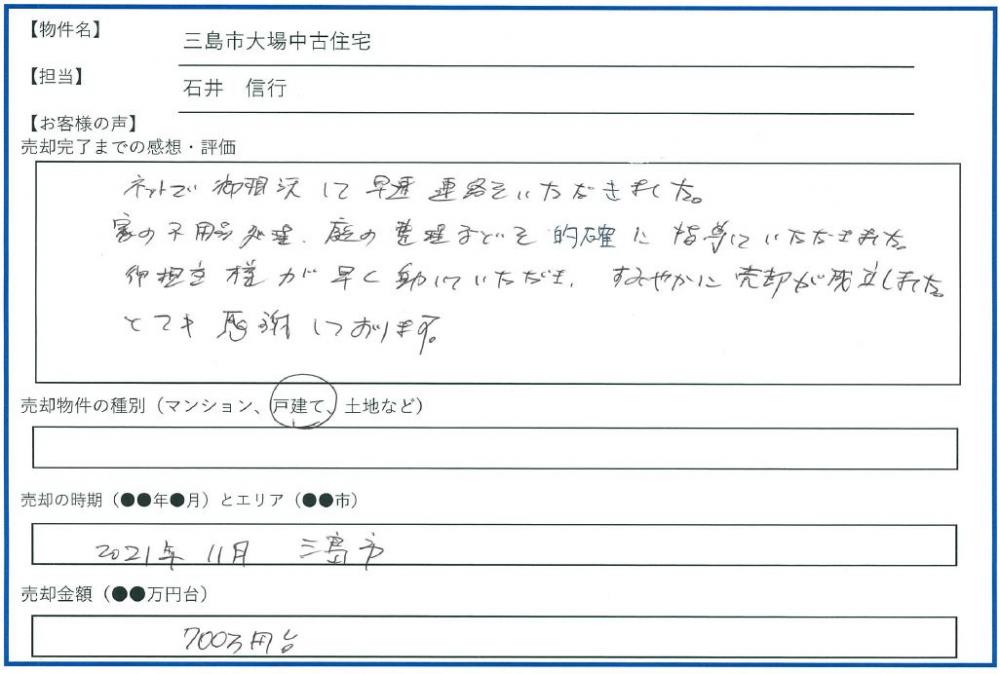 【物件名】
三島市大場中古住宅
【担当】
石井 信行
【お客様の声】
売却完了までの感想・評価
ネットで御相談して早速連絡をいただきました。
家の不用品処理、庭の整理などを的確に指導していただきました。
御担当様が早く動いていただき、すみやかに売却が成立しました。
とても感謝しております。
売却物件の種別（マンション、戸建て、土地など）
売却の時期（●●年●月）とエリア（●●市）
2021年 11月 三島市
売却金額（●●万円台）
700万円台